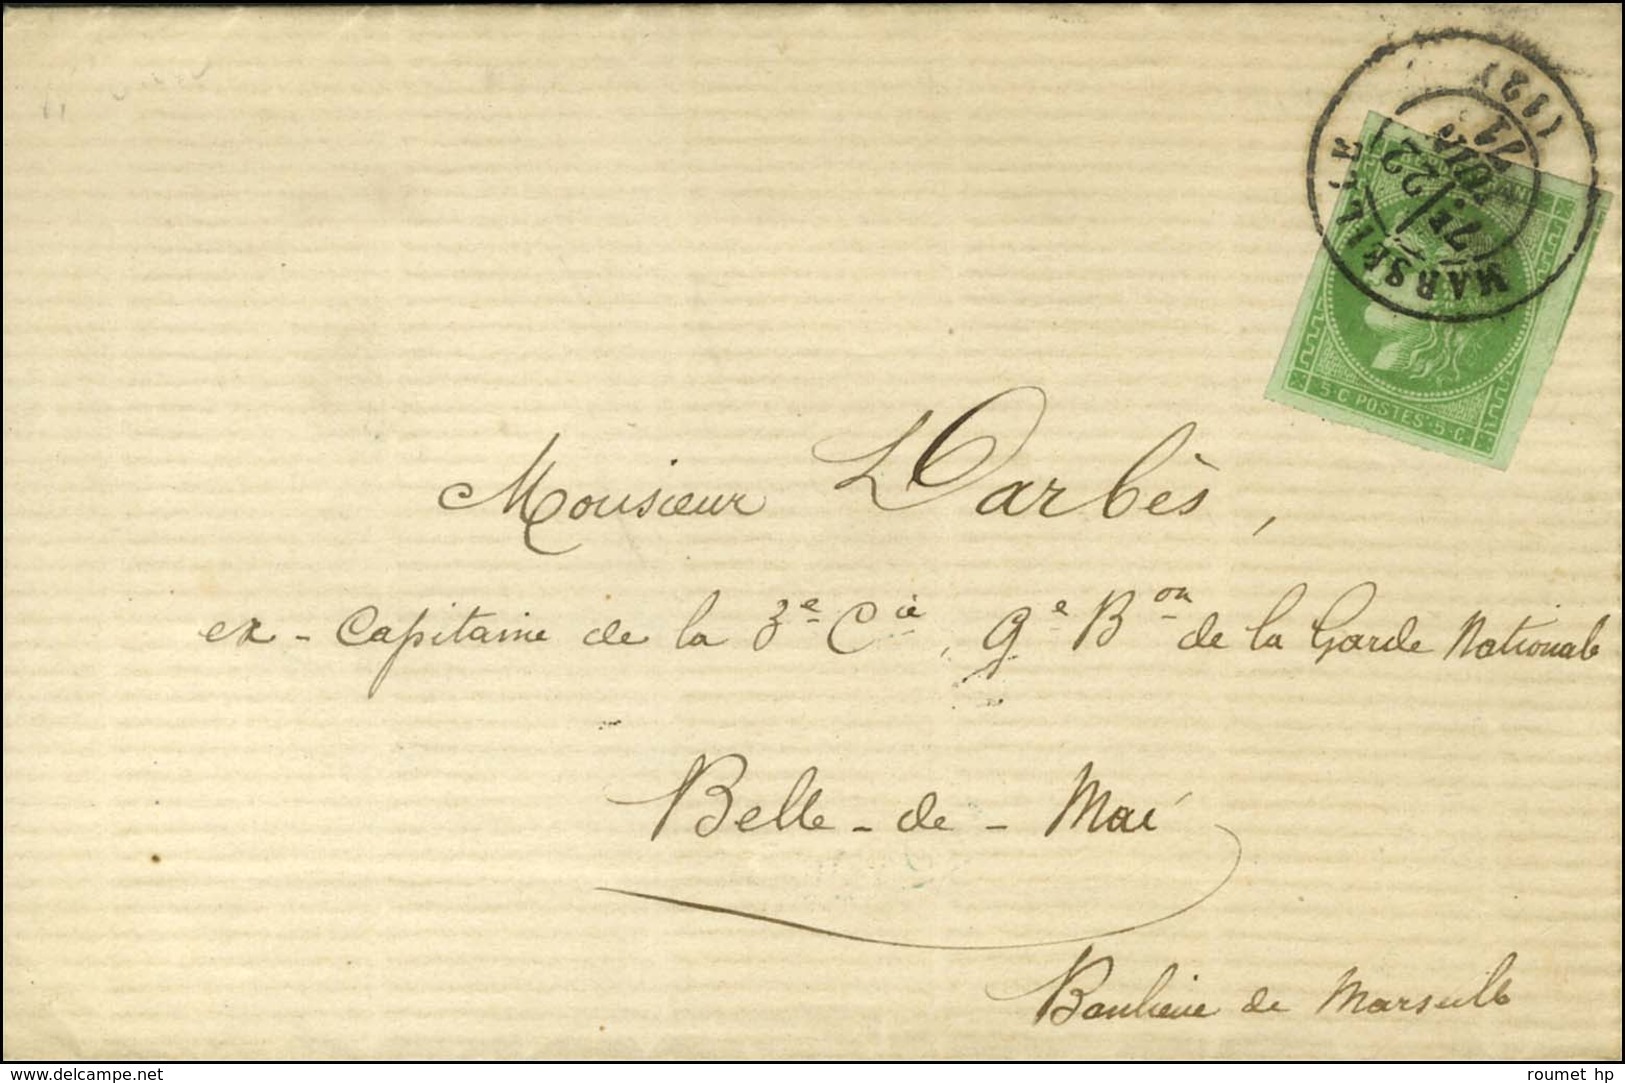 MARSEILLE
(12)
7E
22
71
5·C·POSTES·5·C·
Monsieur L Darbès,
ex-Capitaine de la 3e Cie, 9e Bon de la Garde Nationale
Belle-de-Mai
Banlieue de Marseille
www.delcampe.net
roumet hp